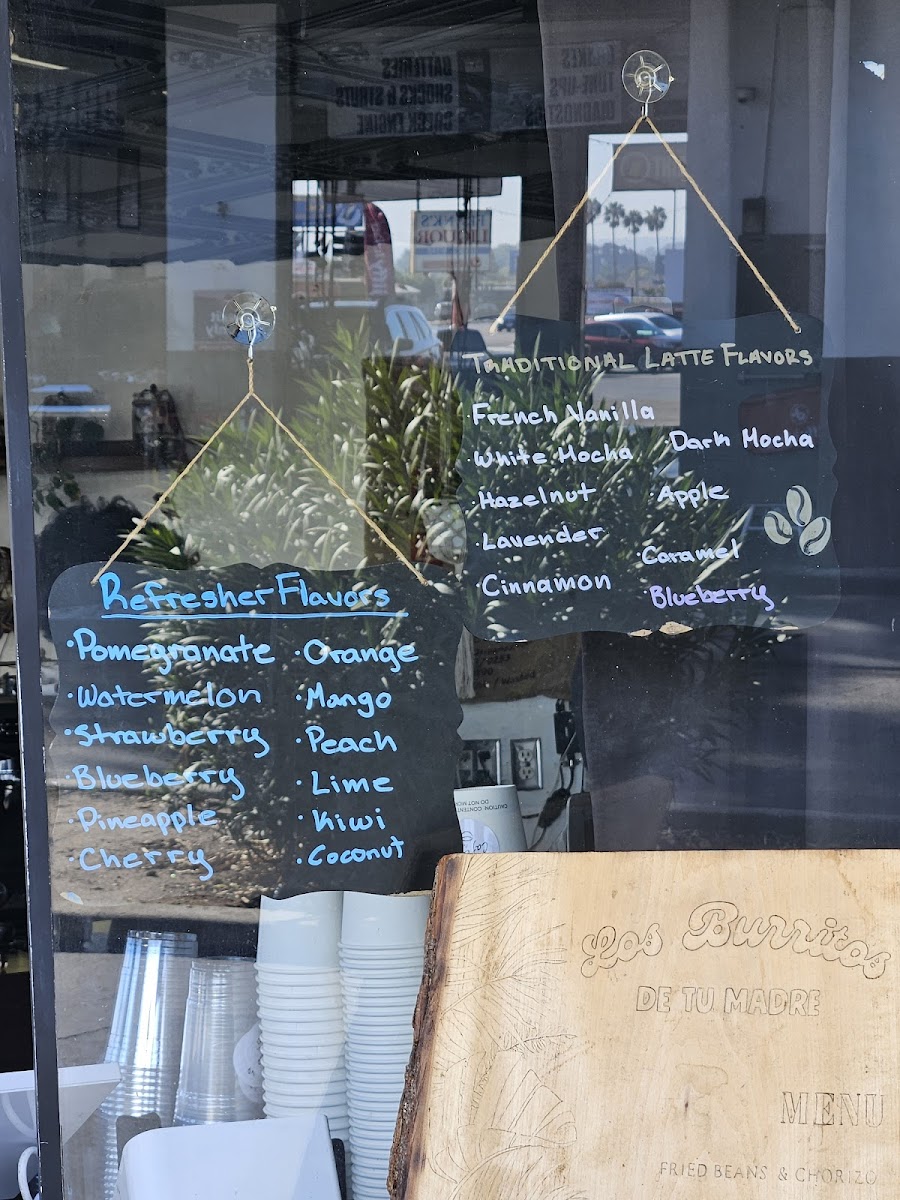 BATTERIES
SHOCKS & STRUTS
CHECK ENGINE
BRAKES
TUNE-UPS
LIQUOR
TRADITIONAL LATTE FLAVORS
· French Vanilla
· White Mocha
· Hazelnut
· Lavender
· Cinnamon
· Dark Mocha
· Apple
· Caramel
· Blueberry
Refresher Flavors
· Pomegranate
· Watermelon
· Strawberry
· Blueberry
· Pineapple
· Cherry
· Orange
· Mango
· Peach
· Lime
· Kiwi
· Coconut
Los Burritos
DE TU MADRE
MENU
FRIED BEANS & CHORIZO